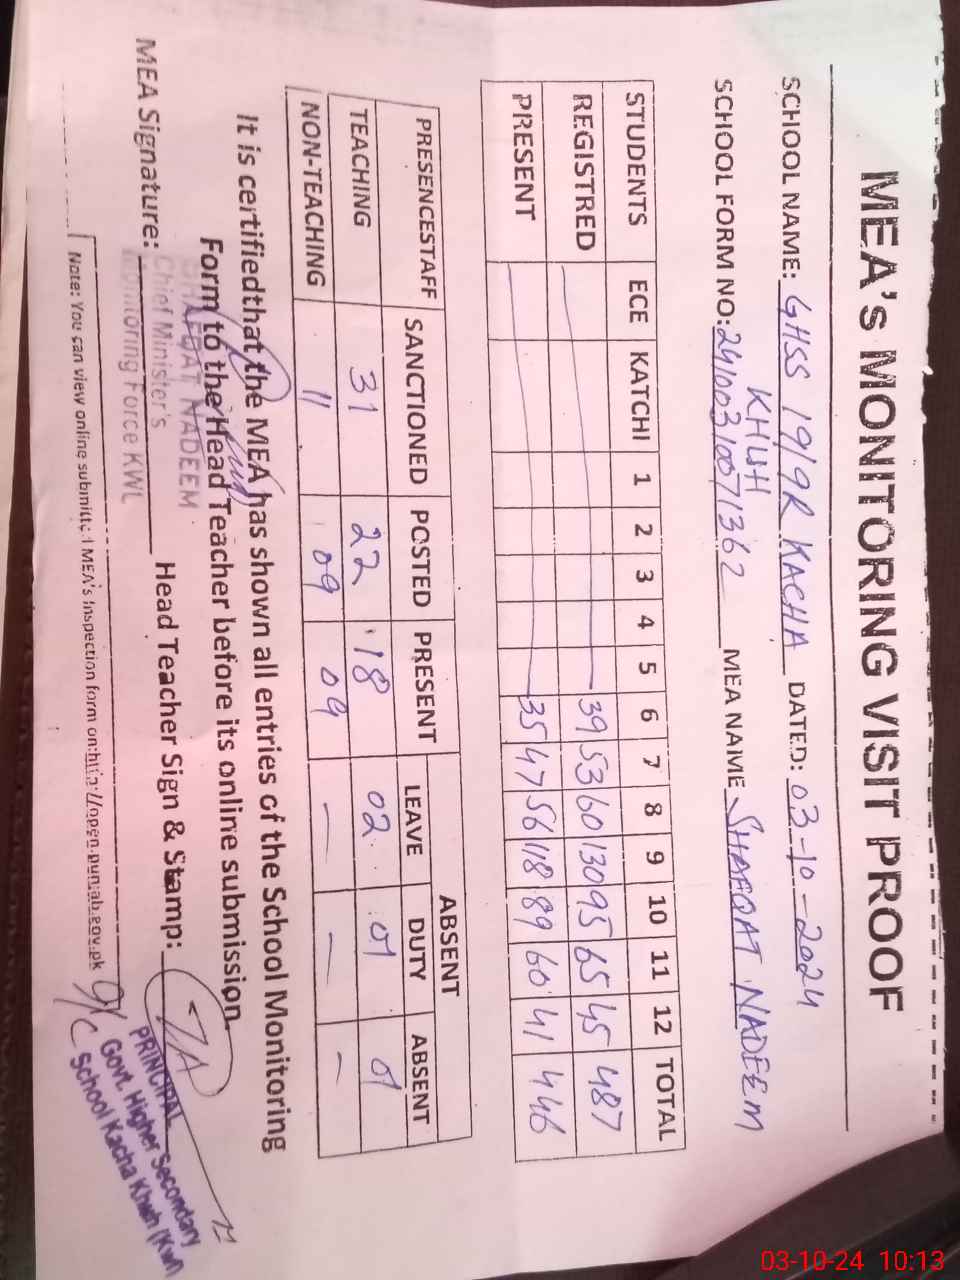 MEA's MONITORING VISIT PROOF
SCHOOL NAME: GHSS 19/9R KACHA KHUH DATED: 03-10-2024
SCHOOL FORM NO: MEA NAME SHAFQAT NADEEM
STUDENTS ECE KATCHI 1 2 3 4 5 6 7 8 9 10 11 12 TOTAL
REGISTRED 39 53 60 130 95 65 45 487
PRESENT 35 47 56 118 89 60 41 446
PRESENCESTAFF SANCTIONED POSTED PRESENT ABSENT
LEAVE DUTY ABSENT
TEACHING 31 22 18 02 01 01
NON-TEACHING 11 09 09 — — —
It is certifiedthat the MEA has shown all entries of the School Monitoring
Form to the Head Teacher before its online submission.
MEA Signature: Head Teacher Sign & Stamp:
SHAFQAT NADEEM
Chief Minister's
Monitoring Force KWL
PRINCIPAL
Govt. Higher Secondary
School Kacha Khuh (Kwl)
Note: You can view online submitted MEA's Inspection form on:http://open.punjab.gov.pk
03-10-24 10:13